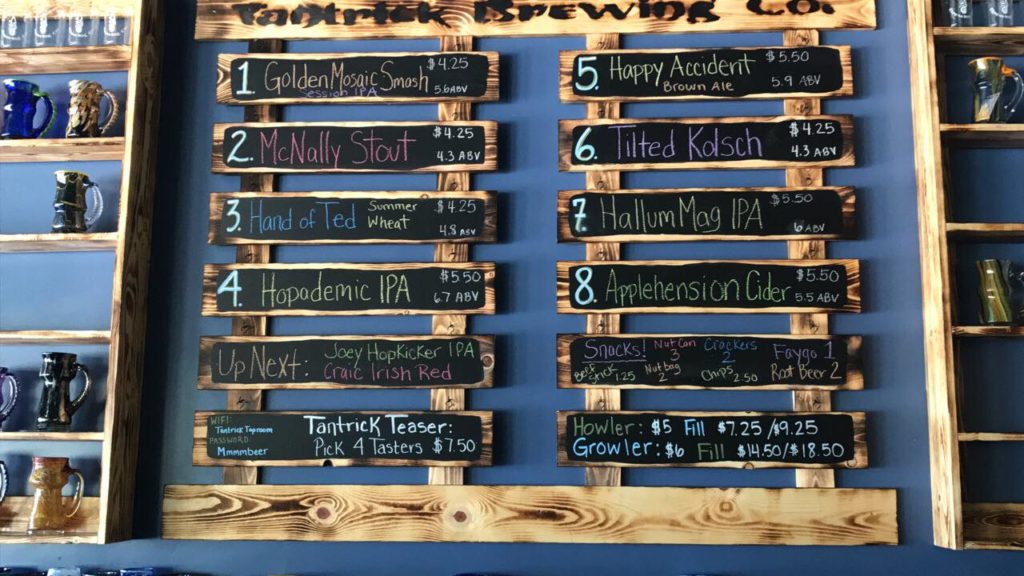 Tantrick Brewing Co.
1 Golden Mosaic Smash $4.25
Session IPA 5.6 ABV
2. McNally Stout $4.25
4.3 ABV
3. Hand of Ted Summer Wheat $4.25
4.8 ABV
4. Hopademic IPA $5.50
6.7 ABV
Up Next: Joey HopKicker IPA
Craic Irish Red
WIFI:
Tantrick Taproom
PASSWORD:
Mmmmbeer
Tantrick Teaser:
Pick 4 Tasters $7.50
5. Happy Accident $5.50
Brown Ale 5.9 ABV
6. Tilted Kolsch $4.25
4.3 ABV
7. HallumMag IPA $5.50
6 ABV
8. Applehension Cider $5.50
5.5 ABV
Snacks! Nut Can 3 Crackers 2 Faygo 1
Beef Stick 1.25 Nut bag 2 Chips 2.50 Root Beer 2
Howler: $5 Fill $7.25/$9.25
Growler: $6 Fill $14.50/$18.50